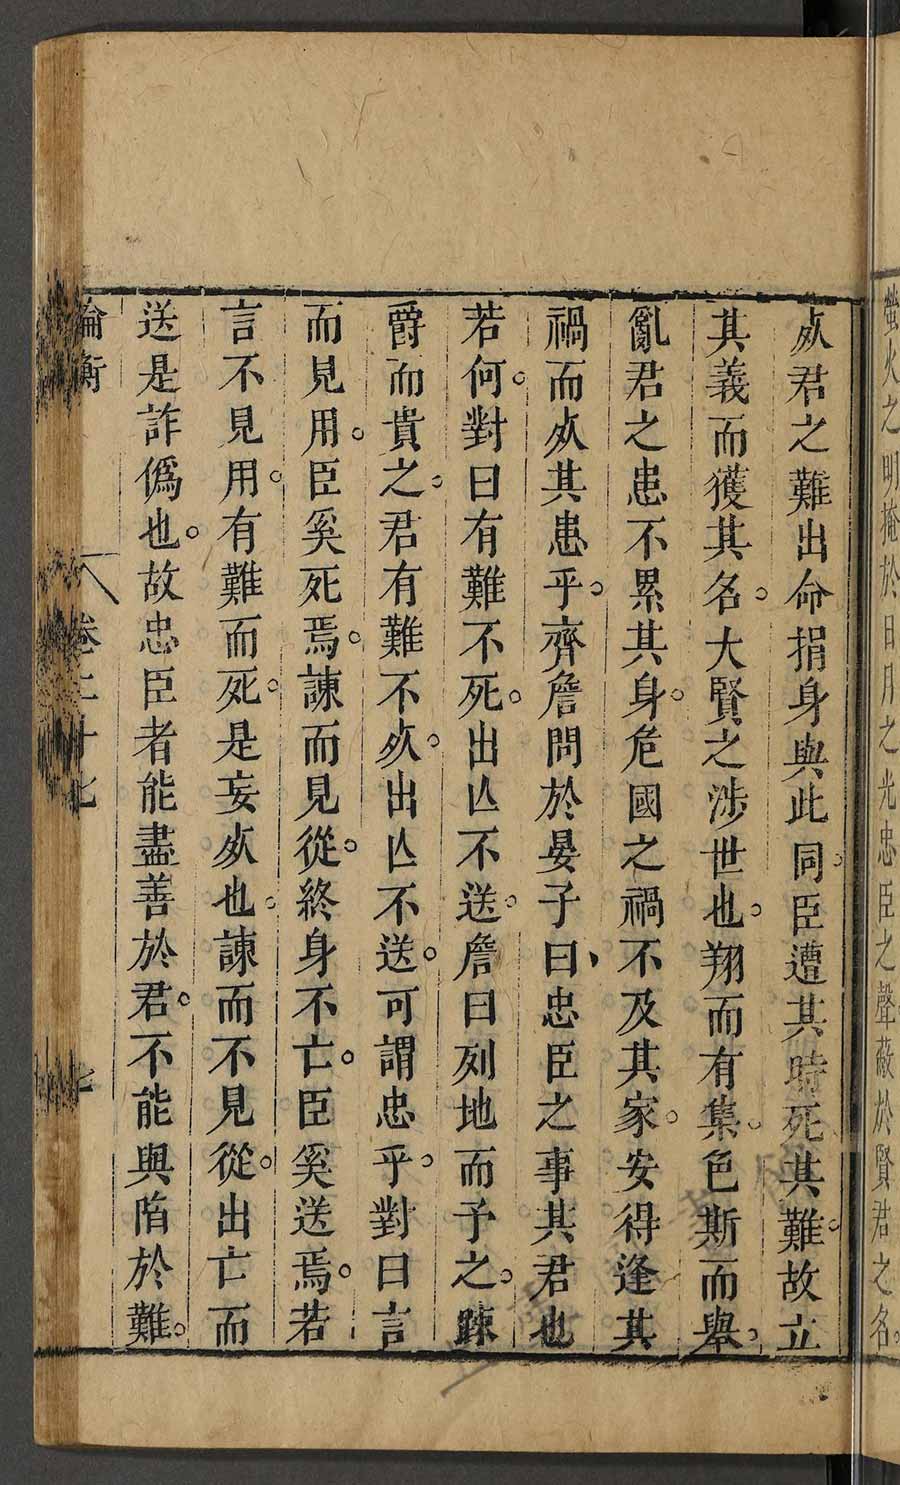 螢火之明掩於日月之光忠臣之聲蔽於賢君之名
死君之難出命捐身與此同臣遭其時死其難故立
其義而獲其名大賢之涉世也翔而有集色斯而舉
亂君之患不累其身危國之禍不及其家安得逢其
禍而死其患乎齊詹問於晏子曰忠臣之事其君也
若何對曰有難不死出亾不送詹曰列地而予之踈
爵而貴之君有難不死出亾不送可謂忠乎對曰言
而見用臣奚死焉諫而見從終身不亡臣奚送焉若
言不見用有難而死是妄死也諫而不見從出亡而
送是詐偽也故忠臣者能盡善於君不能與陷於難
論衡 卷二十七